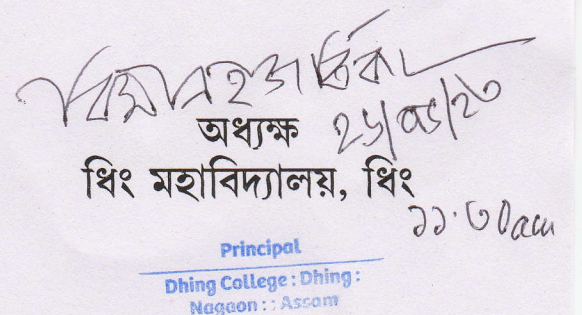 অধ্যক্ষ
২৬/০৫/২৩
ধিং মহাবিদ্যালয়, ধিং
১১.৩০am
Principal
Dhing College : Dhing :
Nagaon : : Assam